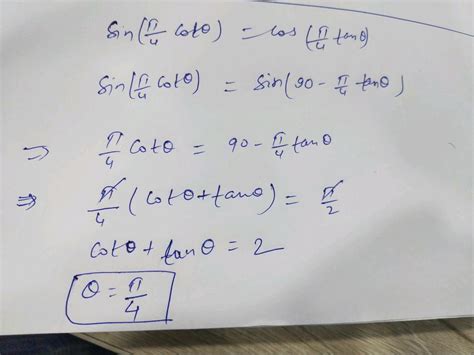 sin(π/4 cotθ) = cos(π/4 tanθ)
sin(π/4 cotθ) = sin(90 - π/4 tanθ)
⇒ π/4 cotθ = 90 - π/4 tanθ
⇒ π/4 (cotθ + tanθ) = π/2
cotθ + tanθ = 2
θ = π/4